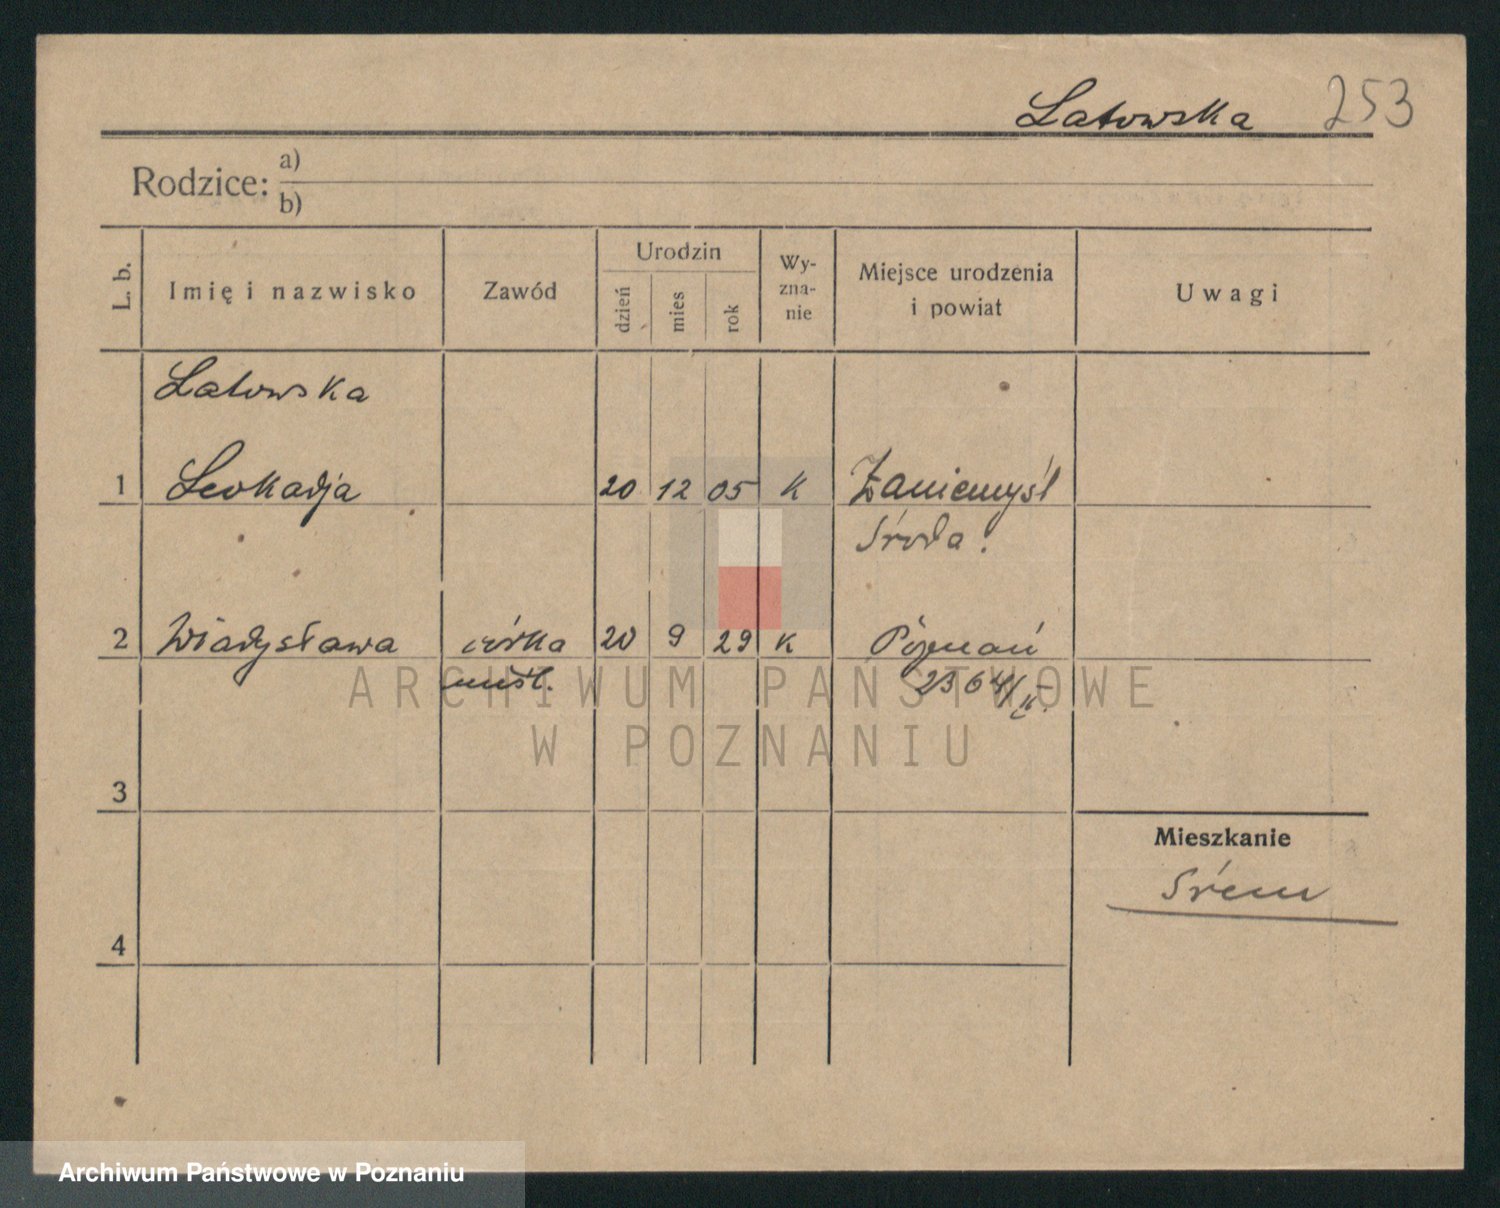 Latowska 253
Rodzice: a)
b)
L. b. Imię i nazwisko Zawód Urodzin dzień mies rok Wy-zna-nie Miejsce urodzenia i powiat Uwagi
Latowska
1 Leokadja 20 12 05 K Zaniemyśl
Środa.
2 Władysława córka 20 9 29 K Poznań
nieśl. 2364/
3
Mieszkanie
Śrem
4
ARCHIWUM PAŃSTWOWE
W POZNANIU
Archiwum Państwowe w Poznaniu